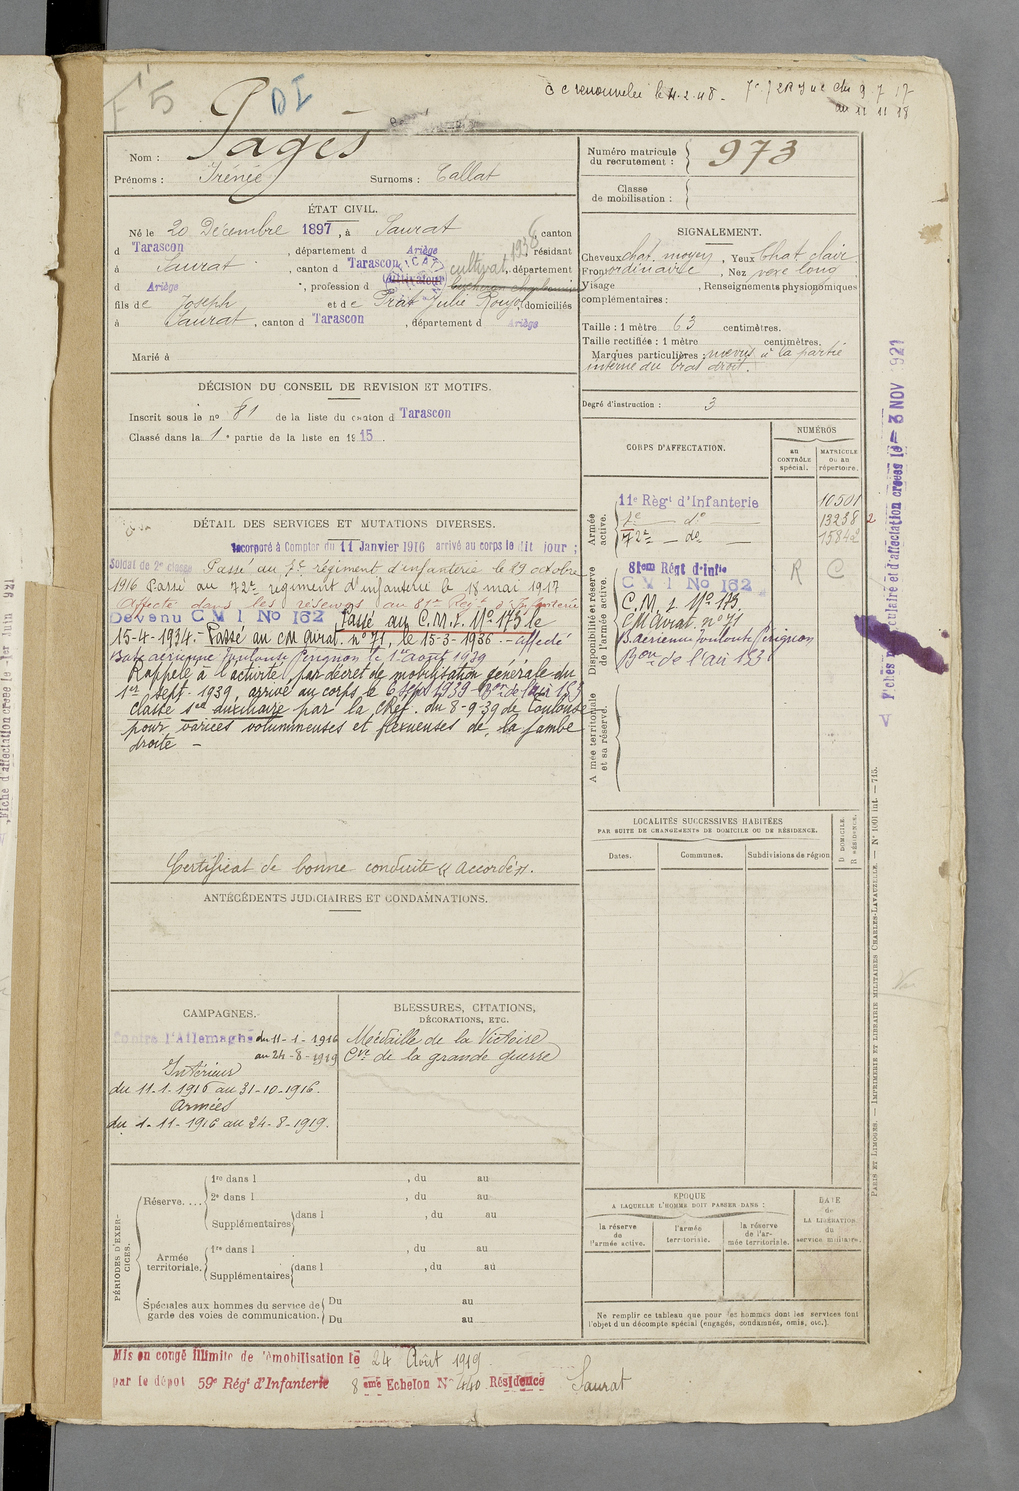 F 15
DI
C C renouvelée le 4.2.48. 7e / 2R J u 2 du 9 7 17
au 11 11 18
Nom : Pagès
Prénoms : Irénée Surnoms : Callat
Numéro matricule du recrutement : 973
Classe de mobilisation :
ÉTAT CIVIL.
Né le 20 Décembre 1897, à Saurat, canton
d Tarascon, département d Ariège, résidant
à Saurat, canton d Tarascon, département
d Ariège, profession d cultivateur 1938 cultivat.
RECTIFICATION
fils de Joseph et de Prat Julie Rouyol, domiciliés
à Saurat, canton d Tarascon, département d Ariège
Marié à
SIGNALEMENT.
Cheveux chat. moyen, Yeux Chat clair
Front ordinaire, Nez vexe long
Visage , Renseignements physionomiques
complémentaires :
Taille : 1 mètre 63 centimètres.
Taille rectifiée : 1 mètre centimètres.
Marques particulières : nævus à la partie
interne du bras droit.
Degré d'instruction : 3
DÉCISION DU CONSEIL DE REVISION ET MOTIFS.
Inscrit sous le no 81 de la liste du canton d Tarascon
Classé dans la 1e partie de la liste en 1915.
DÉTAIL DES SERVICES ET MUTATIONS DIVERSES.
Incorporé à Compter du 11 Janvier 1916 arrivé au corps le dit jour ;
Soldat de 2e classe Passé au 7e régiment d'infanterie le 29 octobre
1916 Passé au 72e régiment d'infanterie le 18 mai 1917
Affecté dans les réserves au 81e Régt d'Infanterie
Devenu C M I No 162 Passé au C.M.I. No 173 le
15-4-1934.- Passé au CM Aviat. no 71, le 15-3-1936.- affecté
Base aérienne Toulouse Pérignon le 1er août 1939
Rappelé à l'activité par décret de mobilisation générale du
1er sept. 1939, arrivé au corps le 6 Sept 1939 Bon de l'air 153
classé sce auxiliaire par la C.Ref. du 8-9-39 de Toulouse
pour varices volumineuses et flexueuses de la jambe
droite -
Certificat de bonne conduite « accordé ».
CORPS D'AFFECTATION.
NUMÉROS
au CONTRÔLE spécial.
MATRICULE ou au répertoire.
Armée active.
11e Régt d'Infanterie 10501
7e — do — 13238 2
72e — do — 1584
Disponibilité et réserve de l'armée active.
81eme Régt d'Infie R C
C M I No 162
C.M.I. No 173.
CM Aviat. no 71
B. aérienne Toulouse Pérignon
Bon de l'air 153
Armée territoriale et sa réserve.
LOCALITÉS SUCCESSIVES HABITÉES
PAR SUITE DE CHANGEMENTS DE DOMICILE OU DE RÉSIDENCE.
Dates. Communes. Subdivisions de région
D. DOMICILE. R. RÉSIDENCE.
ANTÉCÉDENTS JUDICIAIRES ET CONDAMNATIONS.
CAMPAGNES.
Contre l'Allemagne du 11-1-1916
au 24-8-1919
Intérieur
du 11-1-1916 au 31-10-1916.
Armées
du 1-11-1916 au 24-8-1919.
BLESSURES, CITATIONS,
DÉCORATIONS, ETC.
Médaille de la Victoire
Cve de la grande guerre
PÉRIODES D'EXERCICES.
Réserve....
1re dans l , du au
2e dans l , du au
Supplémentaires dans l , du au
Armée territoriale.
1re dans l , du au
Supplémentaires dans l , du au
Spéciales aux hommes du service de
garde des voies de communication.
Du au
Du au
EPOQUE
A LAQUELLE L'HOMME DOIT PASSER DANS :
la réserve de l'armée active.
l'armée territoriale.
la réserve de l'armée territoriale.
DATE de LA LIBÉRATION du service militaire.
Ne remplir ce tableau que pour les hommes dont les services font
l'objet d'un décompte spécial (engagés, condamnés, omis, etc.).
Mis en congé illimité de démobilisation le 24 Août 1919
par le dépôt 59e Régt d'Infanterie 8eme Echelon No 440 Résidence Saurat
culaire et d'affectation créées le - 3 NOV 1921
PARIS ET LIMOGES. — IMPRIMERIE ET LIBRAIRIE MILITAIRES CHARLES-LAVAUZELLE. — No 1001 int. — 715.
Fiche d'affectation créée le 1er Juin 921